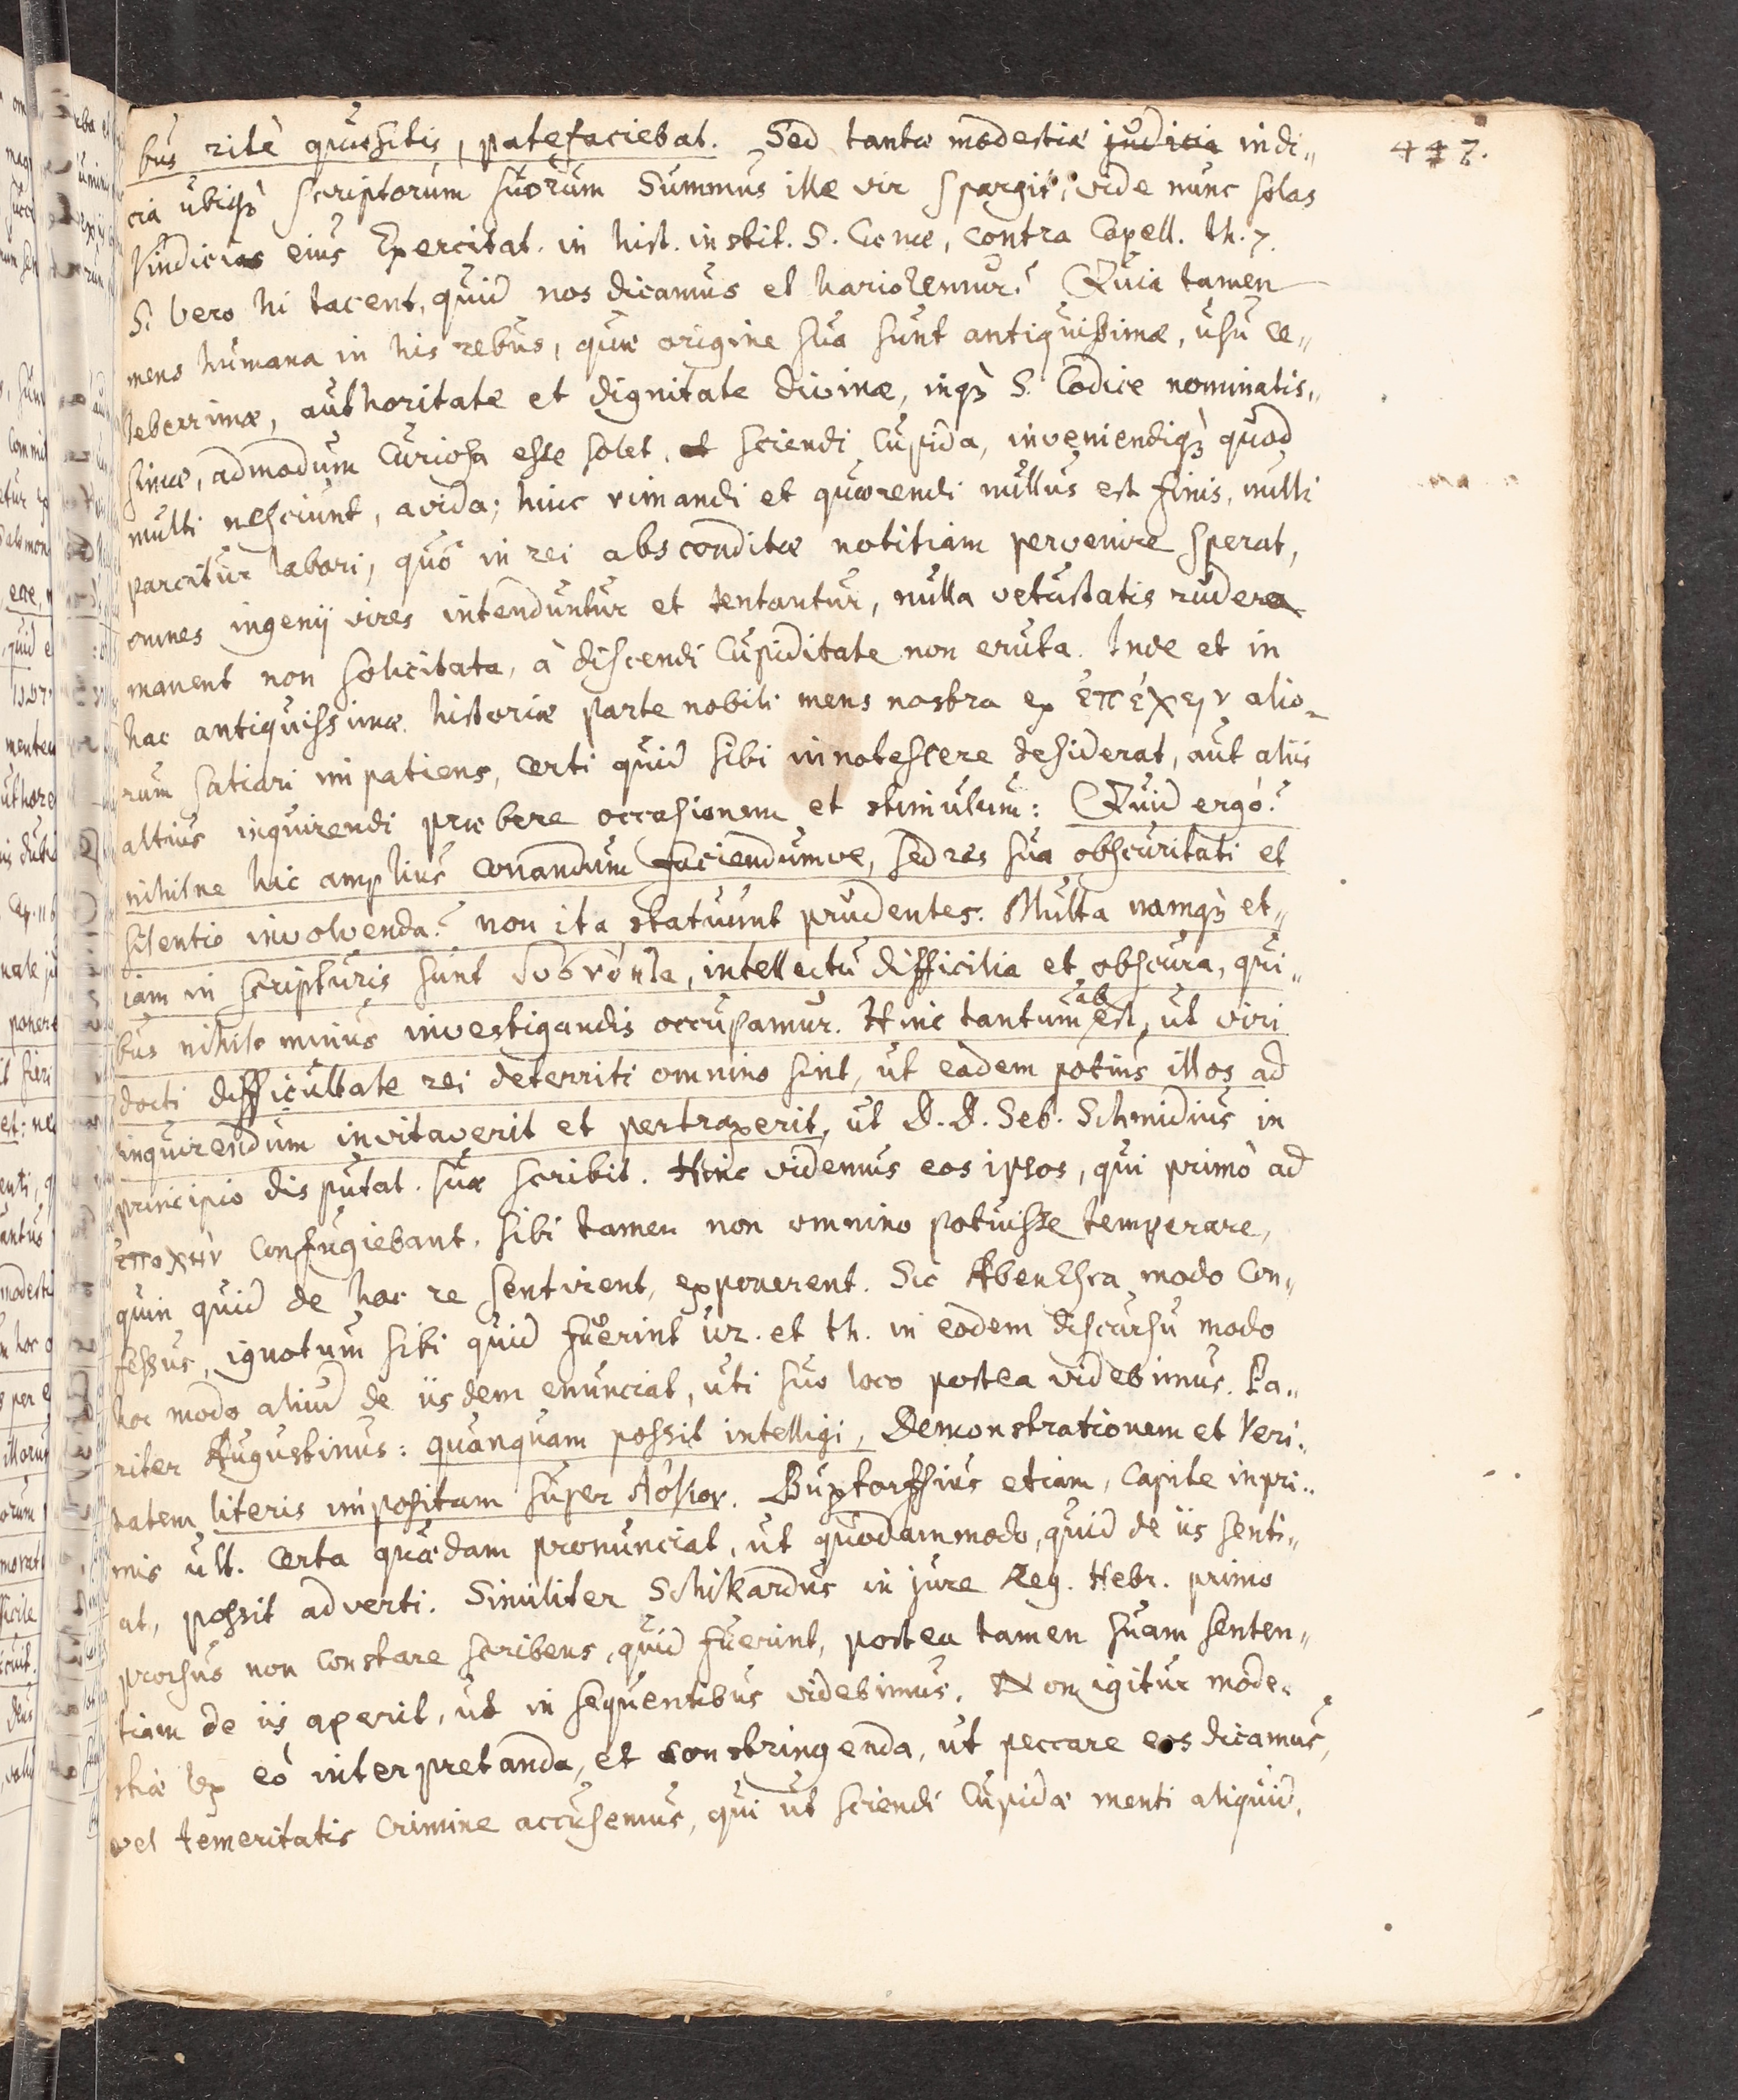 447.
bus ritè quæsitis, patefaciebat. Sed tantæ modestiæ judicia indi„
cia ubiqꝫ scriptorum suorum Summus ille vir spargit; vide nunc solas
Vindicias eius Exercitat. in hist. instit. S. Cœnæ, contra Capell. th. 7.
Si vero hi tacent, quid nos dicamus et hariolemur? Quia tamen
mens humana in his rebus, quæ origine sua sunt antiquissimæ, usu ce„
leberrimæ, authoritate et dignitate divinæ, inqꝫ S. Codice nominatis„
simæ, admodum Curiosa esse solet, et sciendi Cupida, inveniendiqꝫ quod
multi nesciunt, avida; hinc rimandi et quærendi nullus est finis, nulli
parcitur labori, quo in rei absconditæ notitiam pervenire sperat,
omnes ingenij vires intenduntur et tentantur, nulla vetustatis rudera
manent non solicitata, à discendi Cupiditate non eruta. Inde et in
hac antiquissimæ historiæ parte nobili mens nostra ex ἐπέχειν alio„
rum satiari impatiens, certi quid sibi innotescere desiderat, aut aliis
altius inquirendi præbere occasionem et stimulum: Quid ergò?
nihilne hic amplius conandum faciendumve, sed res sua obscuritati et
silentio involvenda? non ita statuunt prudentes. Multa namqꝫ et„
iam in scripturis sunt δυσνόητα, intellectu difficilia et obscura, qui„
bus nihilo minus investigandis occupamur. Hinc tantum abest, ut viri
docti difficultate rei deterriti omnino sint, ut eadem potius illos ad
inquirendum invitaverit et pertraxerit, ut D. D. Seb. Schmidius in
principio disputat. suæ scribit. Hinc videmus eos ipsos, qui primò ad
ἐποχὴν Confugiebant, sibi tamen non omnino potuisse temperare,
quin quid de hac re sentirent, exponerent. Sic AbenEsra modo Con„
fessus, ignotum sibi quid fuerint ur. et th. in eodem discursu modo
hoc modo aliud de iisdem enunciat, uti suo loco postea videbimus. Pa„
riter Augustinus: quanquam possit intelligi, Demonstrationem et Veri„
tatem literis impositam super λόγιον. Buxtorffius etiam, Capite inpri„
mis ult. certa quædam pronunciat, ut quodammodo, quid de iis senti„
at, possit adverti. Similiter Schikardus in jure Reg. Hebr. primo
prorsus non constare scribens, quid fuerint, postea tamen suam senten„
tiam de iis aperit, ut in sequentibus videbimus. Non igitur mode„
stiæ lex eò interpretanda, et constringenda, ut peccare eos dicamus,
vel temeritatis crimine accusemus, qui ut sciendi Cupidæ menti aliquid,